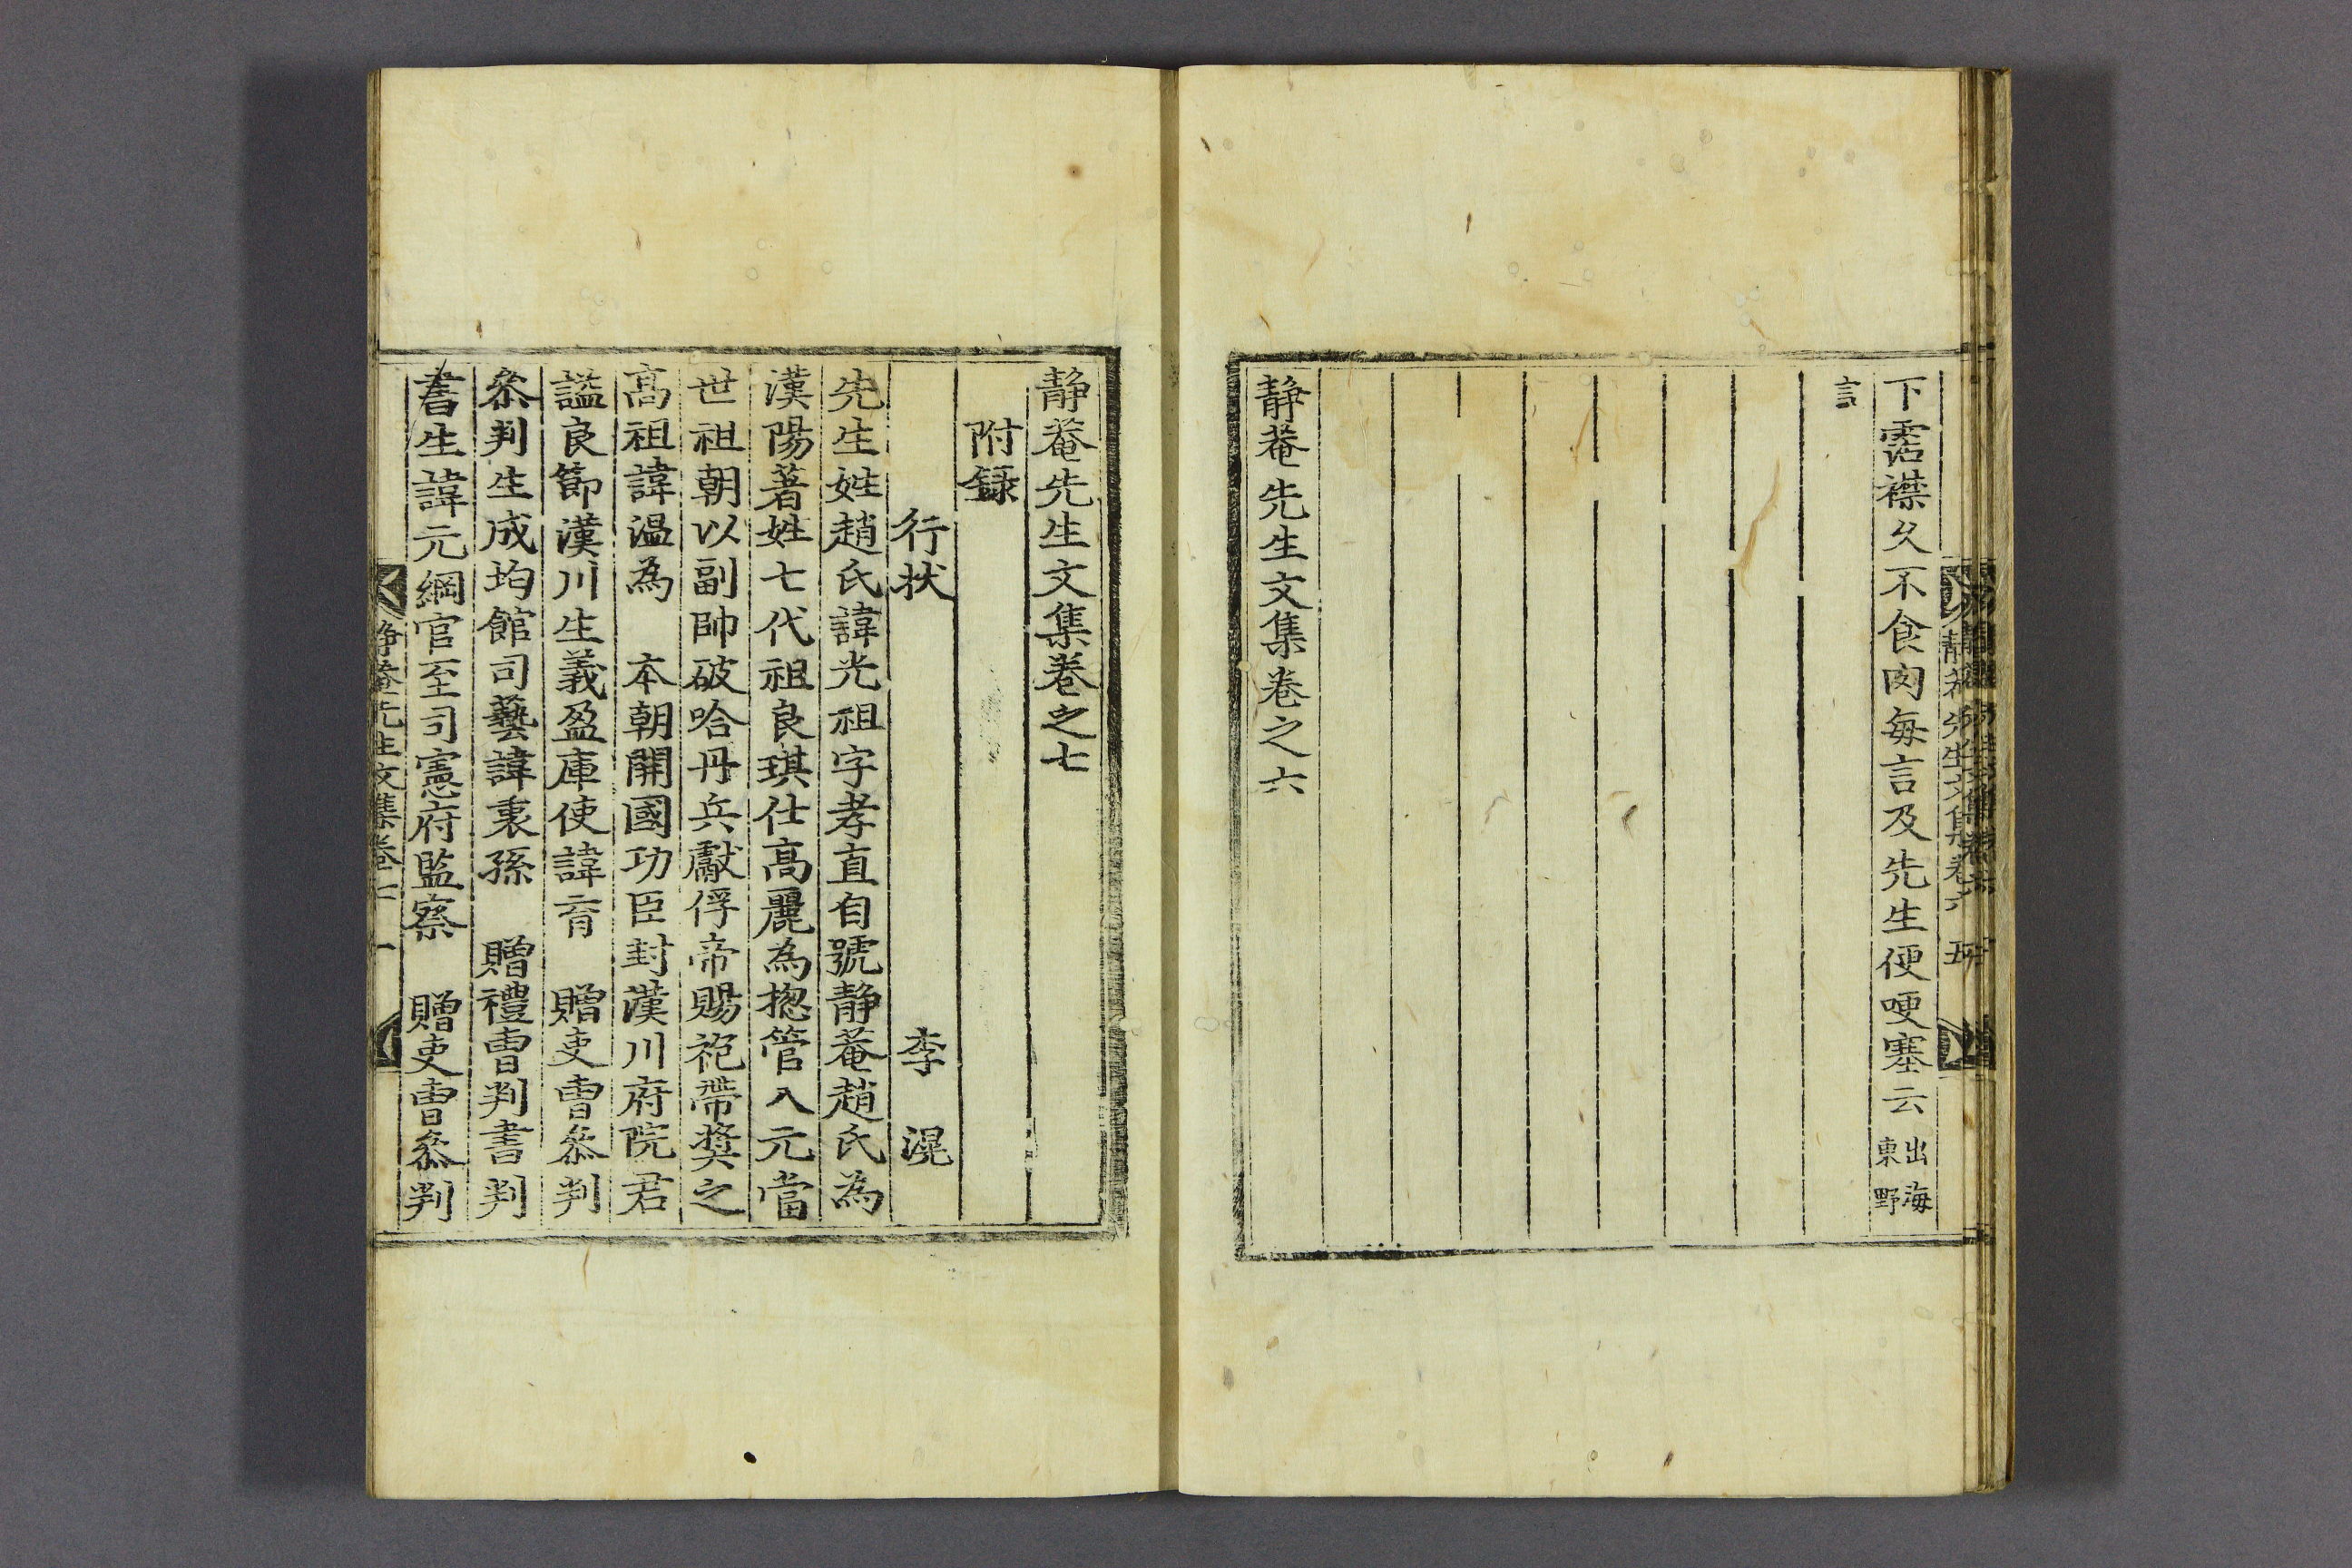 下霑襟久不食肉每言及先生便哽塞云出海東野
言
静菴先生文集卷之六
静菴先生文集卷之七
附録
行状 李滉
先生姓趙氏諱光祖字孝直自號静菴趙氏為
漢陽著姓七代祖良琪仕高麗為揔管入元當
世祖朝以副帥破哈丹兵獻俘帝賜袍帶奬之
高祖諱温為 本朝開國功臣封漢川府院君
謚良節漢川生義盈庫使諱育 贈吏曹叅判
叅判生成均館司藝諱衷孫 贈禮曹判書判
書生諱元綱官至司憲府監察 贈吏曹叅判
静菴先生文集卷七 一